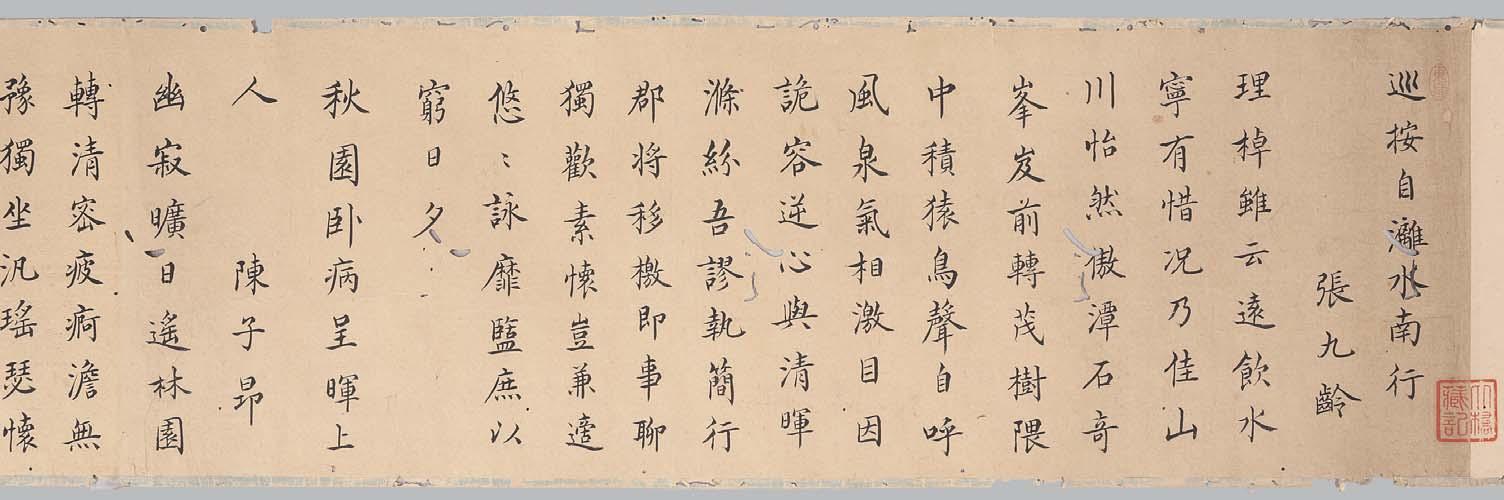 巡按自灕水南行
張九齡
理棹雖云遠飲水
寧有惜况乃佳山
川怡然傲潭石奇
峯岌前轉茂樹隈
中積猿鳥聲自呼
風泉氣相激目因
詭容逆心與清暉
滌紛吾謬執簡行
郡将移檄即事聊
獨歡素懷豈兼適
悠〻詠靡監庶以
窮日夕
秋園卧病呈暉上
人 陳子昂
幽寂曠日遙林園
轉清密疲痾澹無
豫獨坐汎瑤瑟懷
大橋藏記